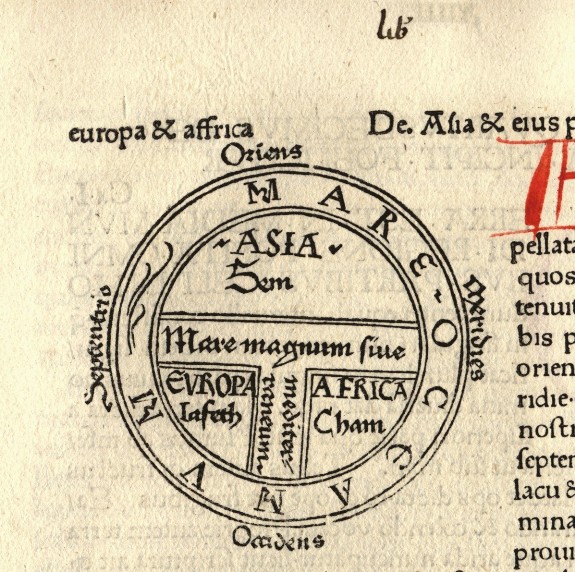 lib
europa & affrica
De. Asia & eius p
Oriens
MARE OCEANVM
ASIA
Sem
Septentrio
Meridies
Mare magnum siue
mediter
raneum
EVROPA
Iafeth
AFRICA
Cham
Occidens
pellata
quos
tenuit
bis p
orien
ridie.
nostr
septen
lacu &
mina
prouin